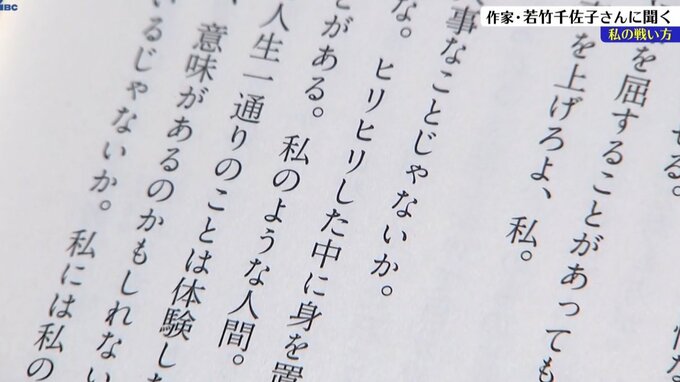 IBC
作家・若竹千佐子さんに聞く
私の戦い方
る。
を屈することがあっても
を上げろよ、私。
事なことじゃないか。
な。ヒリヒリした中に身を置
とがある。私のような人間。
人生一通りのことは体験し
意味があるのかもしれない
るじゃないか。私には私の